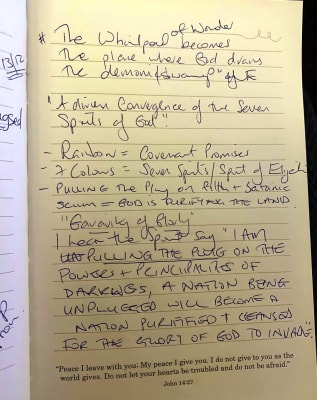 * The Whirlpool of Wonder
becomes
The place where God drains
the demonic "swamp"
"A divine Convergence of the Seven
Spirits of God".
- Rainbow = Covenant Promises
- 7 Colours = Seven Spirits/Spirit of Elijah
- PULLING the Plug on filth + Satanic
Scum = GOD IS PURIFYING THE LAND.
"Gravity of Glory"
I hear the Spirit say "I AM
PULLING THE PLUG ON THE
POWERS + PRINCIPALITIES OF
DARKNESS, A NATION BEING
UNPLUGGED WILL BECOME A
NATION PURIFIED + CLEANSED
FOR THE GLORY OF GOD TO INVADE".
"Peace I leave with you; My peace I give you. I do not give to you as the
world gives. Do not let your hearts be troubled and do not be afraid."
John 14:27
13/12